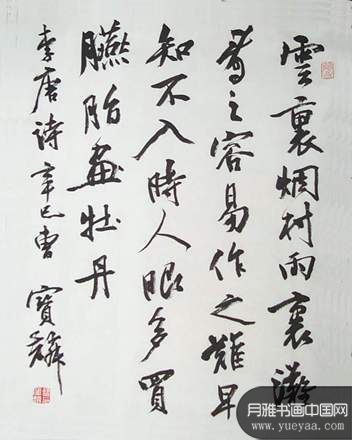 雲裏烟村雨裏灘
看之容易作之難早
知不入時人眼多買
臙脂畫牡丹
李唐詩 辛巳 曹寶麟
月雅书画中国网
www.yueyaa.com